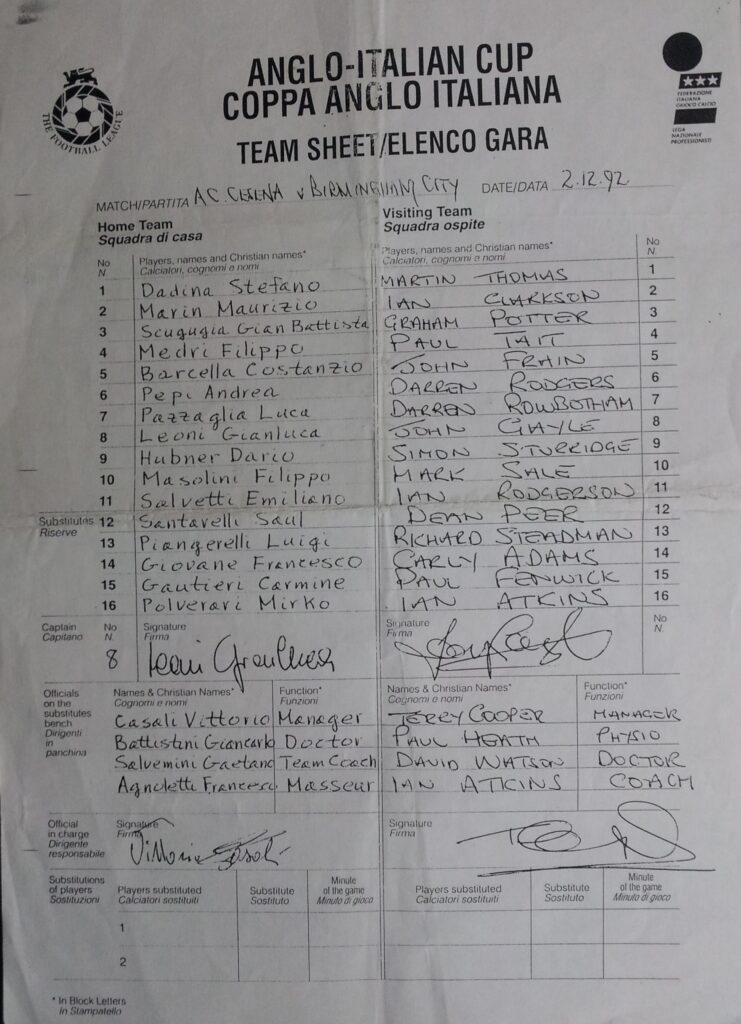 ANGLO-ITALIAN CUP
COPPA ANGLO ITALIANA
TEAM SHEET/ELENCO GARA
THE FOOTBALL LEAGUE
FEDERAZIONE
ITALIANA
GIUOCO CALCIO
LEGA
NAZIONALE
PROFESSIONISTI
MATCH/PARTITA A.C. CESENA v BIRMINGHAM CITY DATE/DATA 2.12.92
Home Team
Squadra di casa
Visiting Team
Squadra ospite
No
N.
Players, names and Christian names*
Calciatori, cognomi e nomi
Players, names and Christian names*
Calciatori, cognomi e nomi
No
N.
1 Dadina Stefano MARTIN THOMAS 1
2 Marin Maurizio IAN CLARKSON 2
3 Scugugia Gian Battista GRAHAM POTTER 3
4 Medri Filippo PAUL TAIT 4
5 Barcella Costanzio JOHN FRAIN 5
6 Pepi Andrea DARREN RODGERS 6
7 Pazzaglia Luca DARREN ROWBOTHAM 7
8 Leoni Gianluca JOHN GAYLE 8
9 Hubner Dario SIMON STURRIDGE 9
10 Masolini Filippo MARK SALE 10
11 Salvetti Emiliano IAN RODGERSON 11
Substitutes
Riserve
12 Santarelli Saul DEAN PEER 12
13 Piangerelli Luigi RICHARD STEADMAN 13
14 Giovane Francesco CARLY ADAMS 14
15 Gautieri Carmine PAUL FENWICK 15
16 Polverari Mirko IAN ATKINS 16
Captain
Capitano
No
N.
8
Signature
Firma
Leoni Gianluca
Signature
Firma
No
N.
Officials
on the
substitutes
bench
Dirigenti
in
panchina
Names & Christian Names*
Cognomi e nomi
Function*
Funzioni
Names & Christian Names*
Cognomi e nomi
Function*
Funzioni
Casali Vittorio Manager TERRY COOPER MANAGER
Battistini Giancarlo Doctor PAUL HEATH PHYSIO
Salvemini Gaetano Team Coach DAVID WATSON DOCTOR
Agnoletti Francesco Masseur IAN ATKINS COACH
Official
in charge
Dirigente
responsabile
Signature
Firma
Vittorio Casali
Signature
Firma
Substitutions
of players
Sostituzioni
Players substituted
Calciatori sostituiti
Substitute
Sostituto
Minute
of the game
Minuto di gioco
Players substituted
Calciatori sostituiti
Substitute
Sostituto
Minute
of the game
Minuto di gioco
1
2
* In Block Letters
In Stampatello